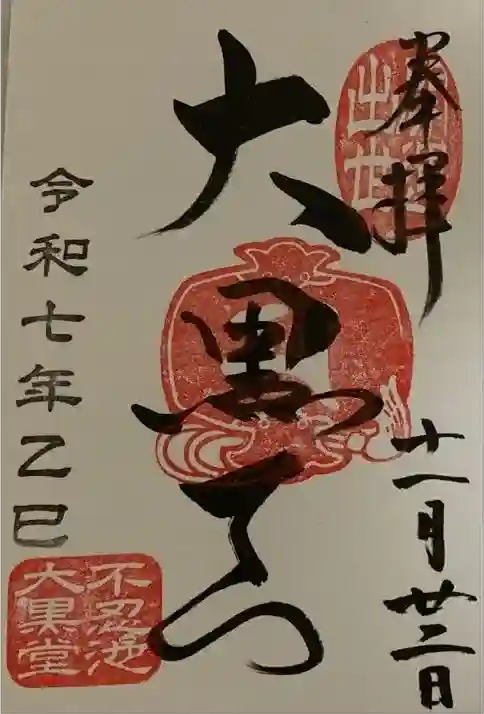 奉拝
出世
十一月廿二日
大黒天
令和七年乙巳
不忍池
大黒堂